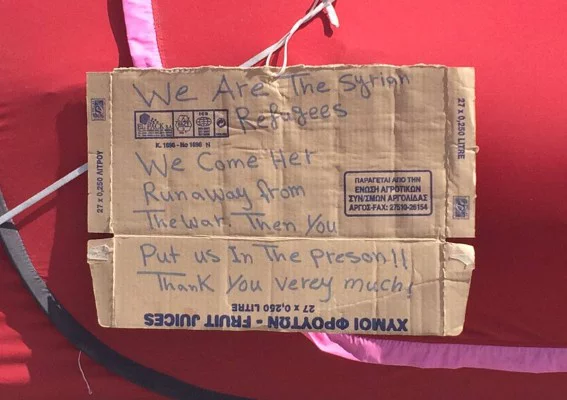 We Are The Syrian
Refugees
K. 1690 - No 1690 N
We Come Her
Runaway from
The war. Then You
Put us In The Preson!!
Thank You verey much!
27 x 0,250 ΛΙΤΡΟΥ
27 x 0,250 LITRE
ΠΑΡΑΓΕΤΑΙ ΑΠΟ ΤΗΝ
ΕΝΩΣΗ ΑΓΡΟΤΙΚΩΝ
ΣΥΝ/ΣΜΩΝ ΑΡΓΟΛΙΔΑΣ
ΑΡΓΟΣ-FAX: 27510-26154
27 x 0,250 LITRE
ΧΥΜΟΙ ΦΡΟΥΤΩΝ - FRUIT JUICES